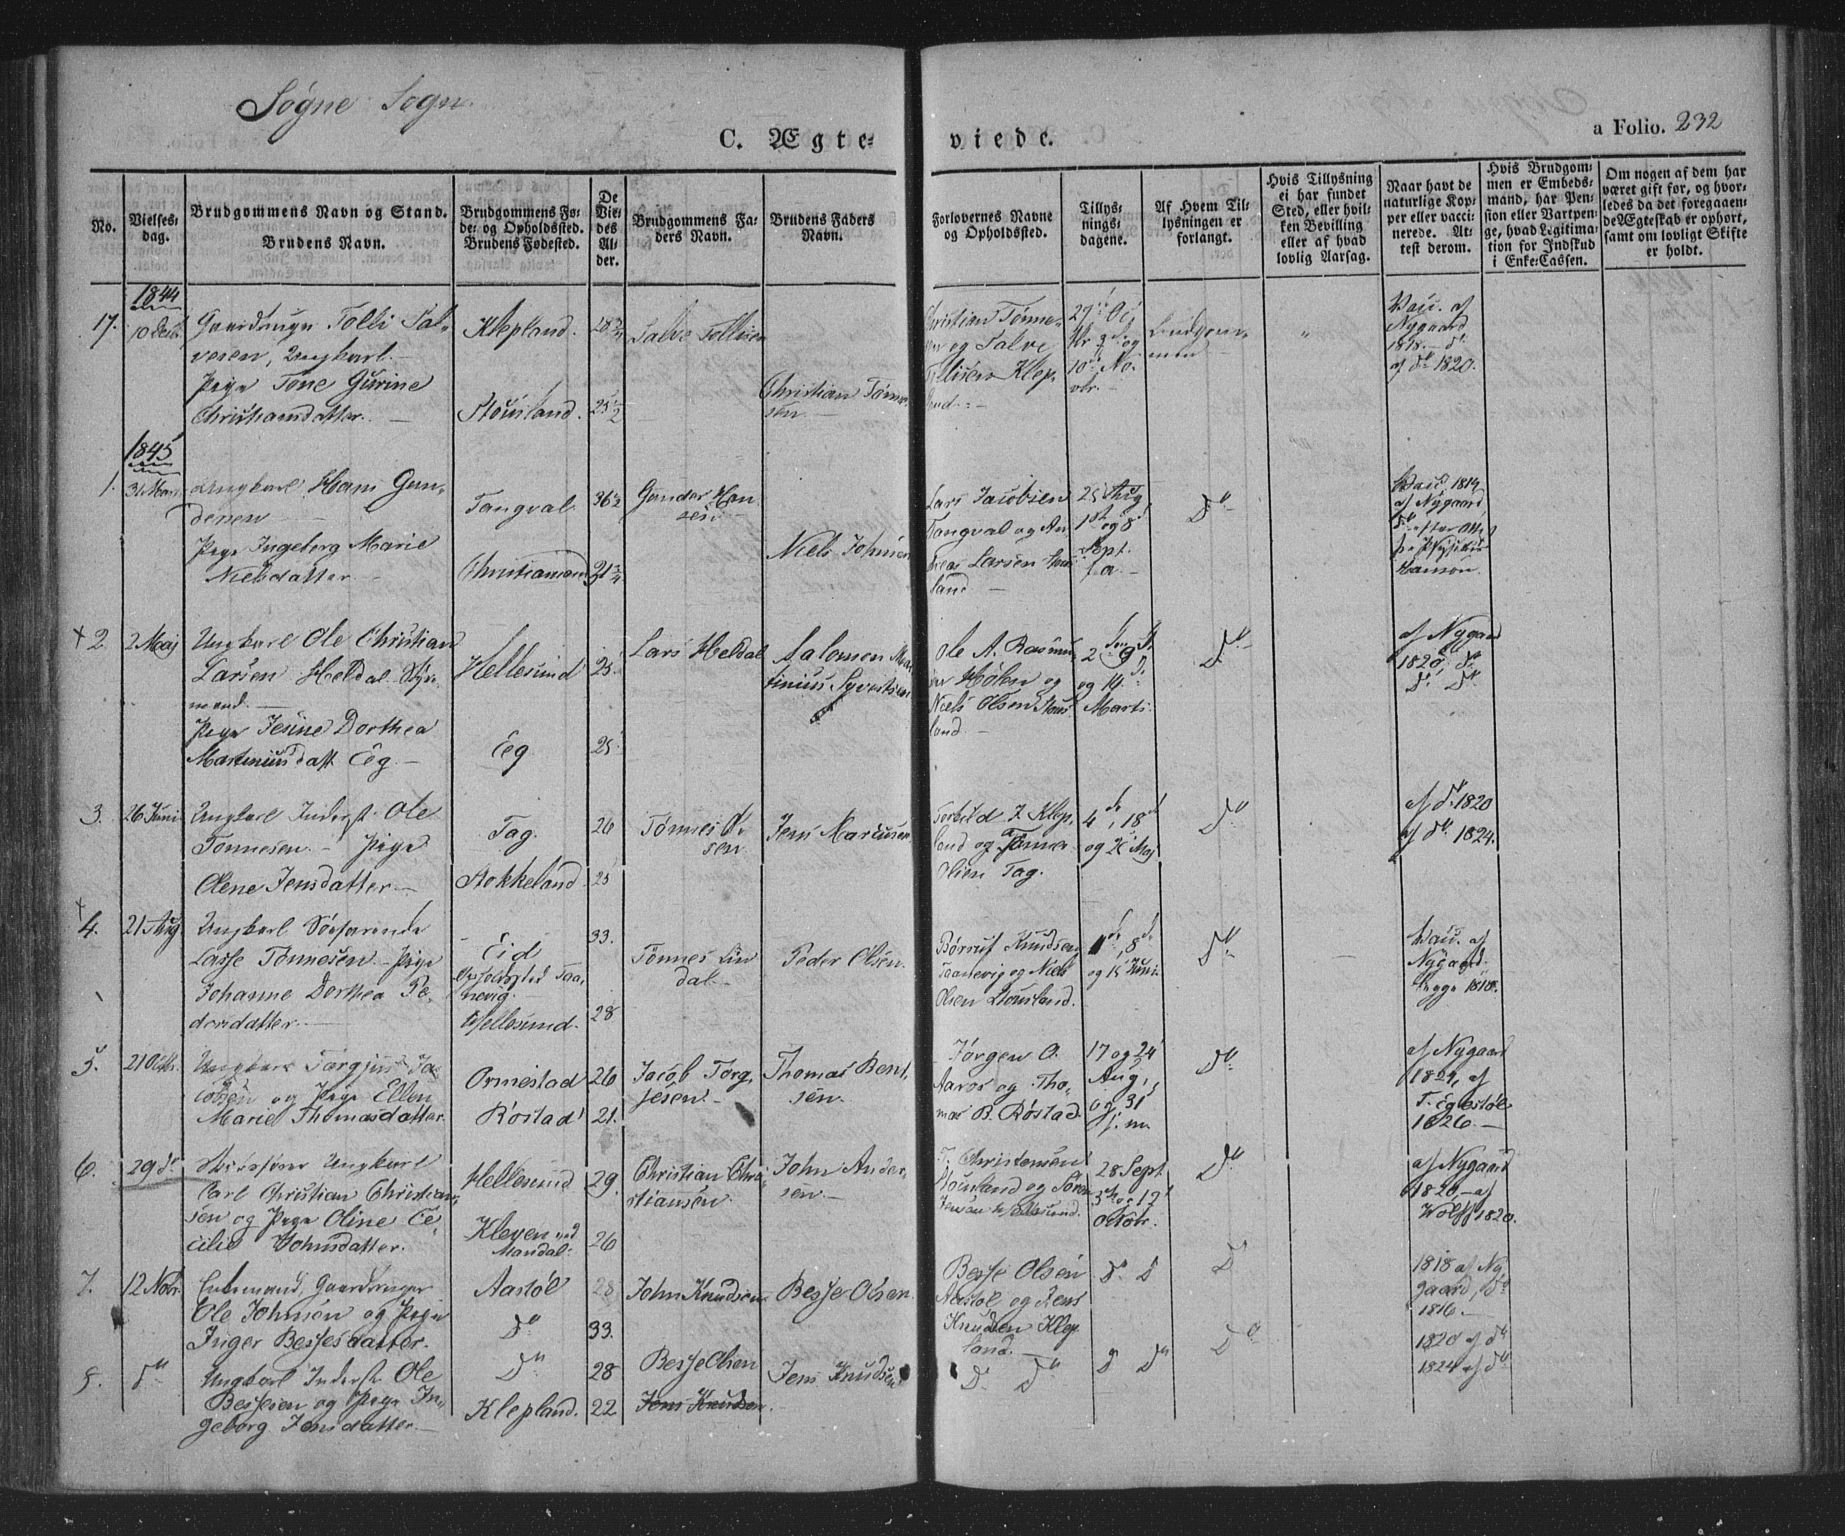 Søgne Sogn.
C. Ægte=
viede.
a Folio. 232
No.
Vielses=
dag.
Brudgommens Navn og Stand.
Brudens Navn.
Brudgommens Fø=
de= og Opholdssted.
Brudens Fødested.
De
Vie=
des
Al=
der.
Brudgommens Fa=
ders Navn.
Brudens Faders
Navn.
Forlovernes Navne
og Opholdssted.
Tillys=
nings=
dagene.
Af Hvem Til=
lysningen er
forlangt.
Hvis Tillysning
ei har fundet
Sted, eller hvil=
ken Bevilling
eller af hvad
lovlig Aarsag.
Naar havt de
naturlige Kop=
per eller vacci=
nerede. At=
test derom.
Hvis Brudgom=
men er Embeds=
mand, har Pen=
sion eller Vartpen=
ge, hvad Legitima=
tion for Indskud
i Enke=Cassen.
Om nogen af dem har
været gift før, og hvor=
ledes da det foregaaen=
de Ægteskab er ophørt,
samt om lovligt Skifte
er holdt.
1844
17.
10 Decb.
Tolli Sal=
vesen, Ungkarl.
Pige Tone Gurine
Christiansdatter.
Klepland.
Stousland.
28 3/4
25 1/2
Salve Tollisen
Christian Tønne=
sen.
Christian Tønne=
sen og Salve
Tollisen Klep=
land.
10de No=
vbr.
Brudgom=
men
"
Vacc. af
Nygaard
1818. do
af do 1820.
1845
1.
31 Mars
Ungkarl Hans Gun=
dersen
Pige Ingeborg Marie
Nielsdatter
Tangval
Christiansand
36 1/2
21 3/4
Gunder Han
sen
Niels Johnsen
Lars Jacobsen
Tangval og An=
dreas Larsen Stous
land
25 Aug
1ste og 8de
Sept.
f. a.
Do
Vacc. 1814
af Nygaard
Hanson.
+ 2
2 Maj
Ungkarl Ole Christian
Larsen Heldal Styr=
mand.
Pige Jesine Dorthea
Martinius datt. Eeg.
Hellesund
Eeg
25
25
Lars Heldal
Salomon Mar
tinius Syvertsen
Ole A. Rasmus
sen Høllen og
Niels Olsen Stous
land.
og 14de
Marts.
Do
af Nygaard
1820, do
do do
3.
26 Juni
Ungkarl Inderst Ole
Tønnesen. Pige
Olene Jensdatter.
Tag.
Stokkeland
26
25
Tønnes Ol
sen
Jens Marcusen
Torkild J. Klep=
land og Tønnes
Olsen Tag.
4de, 18de
og 21 Maj
Do
af do 1820
af do 1824.
+ 4.
21 Aug
Ungkarl Søefarende
Lasse Tønnesen. Pige
Johanne Dorthea Pe=
dersdatter.
Eid
Opholdssted Taa=
nevig.
Hellesund.
33.
28
Tønnes Lin
dal.
Peder Olsen.
Børruf Knudsen
Taanevig og Niels
Olsen Stousland.
1de, 8de
og 15 Juni
Do
Vacc. af
Nygaard.
begge 1818.
5.
21 Octbr.
Ungkarl Torgjus Ja=
cobsen og Pige Ellen
Marie Thomasdatter.
Ormestad
Røstad
26
21.
Jacob Torg=
jesen.
Thomas Bent=
sen.
Jørgen O.
Aaros og Tho=
mas B. Røstad.
17 og 24
Aug.,
og 31
Do
af Nygaard
1824, af
T. Eglestøl
1826.
6.
29 do
Ungkarl
Carl Christian Christian=
sen og Pige Oline Ce=
cilie Johnsdatter.
Hellesund
Kleven ved
Mandal.
29.
26
Christian Chri=
stiansen
John Ander=
sen.
T. Christensen
Stousland og Søren
Jensen Hellesund.
28 Sept
5te og 12
Octobr.
Do
af Nygaard
1820, af
Wolff 1820.
7.
12 Nobr.
Enkemand, Gaardbruger
Ole Johnsen og Pige
Inger Bessesdatter.
Aastøl
Do
28
33.
John Knudsen
Besse Olsen
Besse Olsen
Aastøl og Jens
Knudsen Klep
land.
Do Do
Do
1818 af Ny
gaard, do
1816.
8.
do
Ungkarl Inderst Ole
Bessesen og Pige In=
geborg Jensdatter.
Do
Klepland.
28
22
Besse Olsen
Jens Knudsen.
Jens Knudsen
Do Do
Do Do
Do
1820 af do
1824 af do